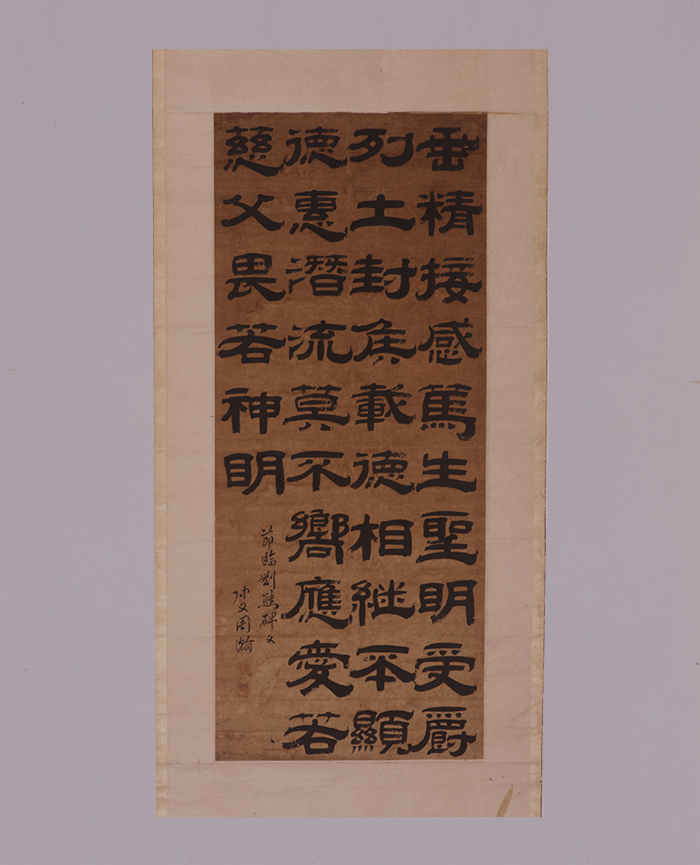 垂精接感篤生聖明受爵
列土封侯載德相継丕顯
德惠潛流莫不嚮應愛若
慈父畏若神明
節臨劉熊碑文